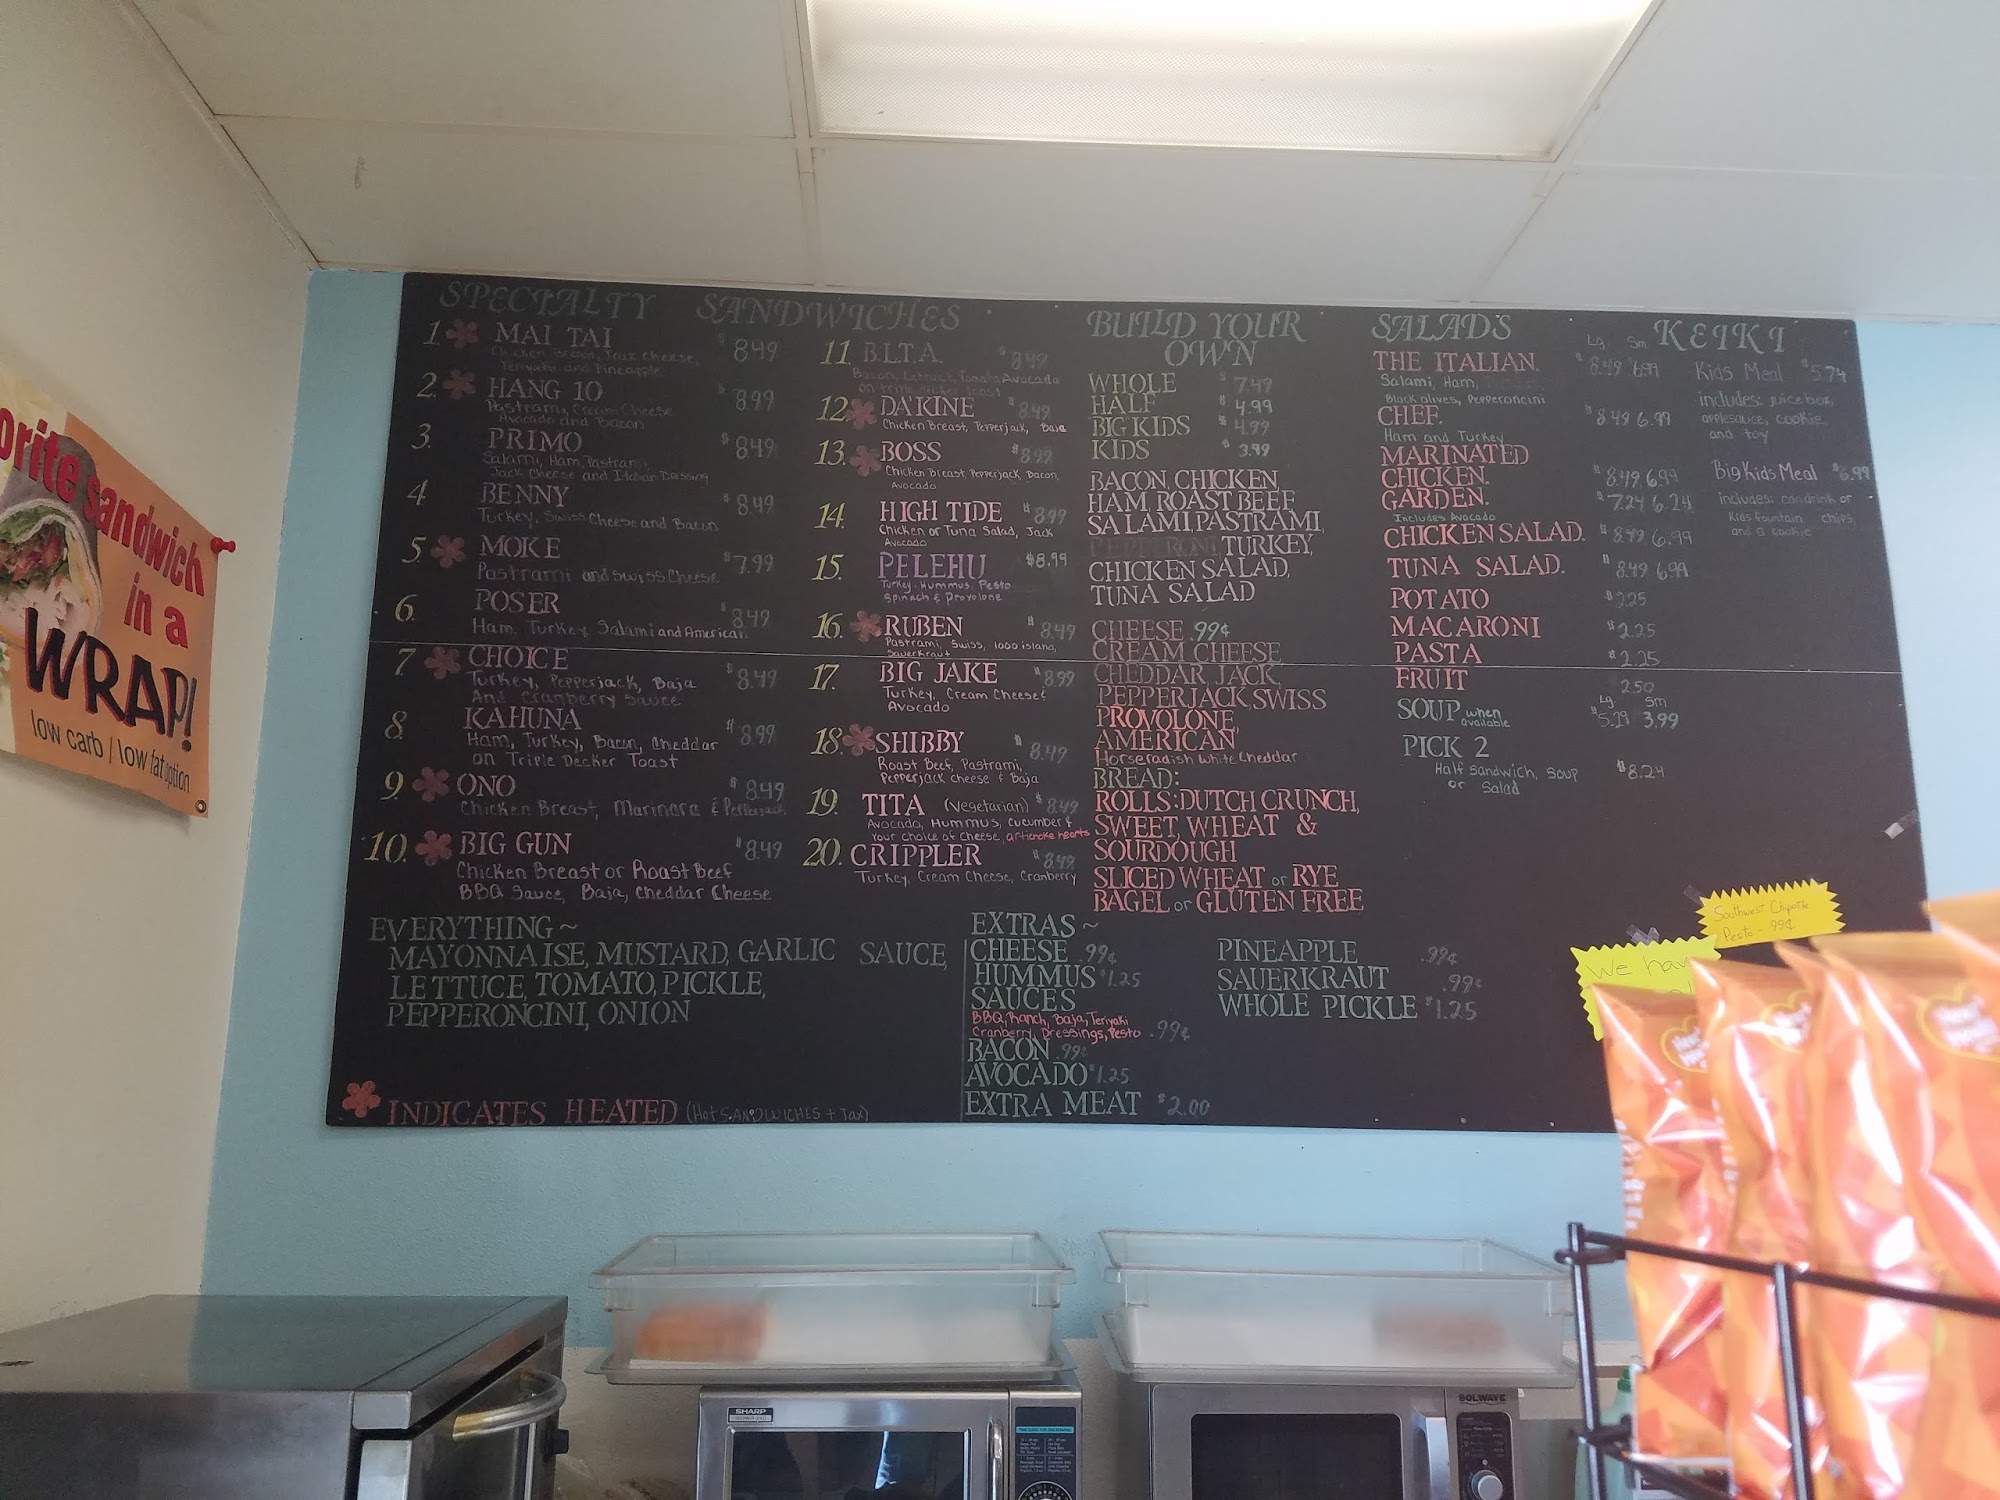 SPECIALTY SANDWICHES
1 MAI TAI $8.49
Chicken Breast, Jack Cheese,
Teriyaki and Pineapple
2. HANG 10 $8.99
Pastrami, Cream Cheese
Avocado and Bacon
3. PRIMO $8.49
Salami, Ham, Pastrami,
Jack Cheese and Italian Dressing
4 BENNY $8.49
Turkey, Swiss Cheese and Bacon
5. MOKE $7.99
Pastrami and Swiss Cheese
6. POSER $8.49
Ham, Turkey, Salami and American
7 CHOICE $8.49
Turkey, Pepperjack, Baja
And Cranberry Sauce
8. KAHUNA $8.99
Ham, Turkey, Bacon, Cheddar
on Triple Decker Toast
9. ONO $8.49
Chicken Breast, Marinara & Pepperjack
10. BIG GUN $8.49
Chicken Breast or Roast Beef
BBQ Sauce, Baja, Cheddar Cheese
11 B.L.T.A. $8.49
Bacon, Lettuce, Tomato, Avocado
on triple decker toast
12. DA KINE $8.49
Chicken Breast, Pepperjack, Baja
13. BOSS $8.99
Chicken Breast, Pepperjack, Bacon,
Avocado
14. HIGH TIDE $8.99
Chicken or Tuna Salad, Jack
Avocado
15. PELEHU $8.99
Turkey, Hummus, Pesto
Spinach & Provolone
16. RUBEN $8.49
Pastrami, Swiss, 1000 island,
Sauerkraut
17. BIG JAKE $8.99
Turkey, Cream Cheese &
Avocado
18. SHIBBY $8.49
Roast Beef, Pastrami,
Pepperjack cheese & Baja
19. TITA (Vegetarian) $8.49
Avocado, Hummus, Cucumber &
Your choice of Cheese, artichoke hearts
20. CRIPPLER $8.49
Turkey, Cream Cheese, Cranberry
BUILD YOUR
OWN
WHOLE $7.49
HALF $4.99
BIG KIDS $4.99
KIDS $3.99
BACON, CHICKEN,
HAM, ROAST BEEF
SALAMI, PASTRAMI,
PEPPERONI, TURKEY,
CHICKEN SALAD,
TUNA SALAD
CHEESE .99¢
CREAM CHEESE
CHEDDAR, JACK,
PEPPERJACK, SWISS
PROVOLONE,
AMERICAN
Horseradish White Cheddar
BREAD:
ROLLS: DUTCH CRUNCH,
SWEET, WHEAT &
SOURDOUGH
SLICED WHEAT or RYE
BAGEL or GLUTEN FREE
SALADS
Lg. Sm
THE ITALIAN. $8.49 6.99
Salami, Ham,
Black olives, Pepperoncini
CHEF. $8.49 6.99
Ham and Turkey
MARINATED
CHICKEN. $8.49 6.99
GARDEN. $7.24 6.24
Includes Avocado
CHICKEN SALAD. $8.49 6.99
TUNA SALAD. $8.49 6.99
POTATO $2.25
MACARONI $2.25
PASTA $2.25
FRUIT 2.50
Lg. Sm
SOUP when available $5.29 3.99
PICK 2
Half Sandwich, Soup $8.24
or Salad
KEIKI
Kids Meal $5.74
includes: juice box,
applesauce, cookie,
and toy
Big Kids Meal $6.99
includes: can drink or
Kids fountain chips,
and a cookie
EVERYTHING ~
MAYONNAISE, MUSTARD, GARLIC SAUCE,
LETTUCE, TOMATO, PICKLE,
PEPPERONCINI, ONION
INDICATES HEATED (HOT SANDWICHES + Tax)
EXTRAS ~
CHEESE .99¢
HUMMUS $1.25
SAUCES
BBQ, Ranch, Baja, Teriyaki
Cranberry, Dressings, Pesto .99¢
BACON .99¢
AVOCADO $1.25
EXTRA MEAT $2.00
PINEAPPLE .99¢
SAUERKRAUT .99¢
WHOLE PICKLE $1.25
Southwest Chipotle
Pesto - 99¢
We have
orite sandwich
in a
WRAP!
low carb / low fat option
SHARP
SOLWAVE